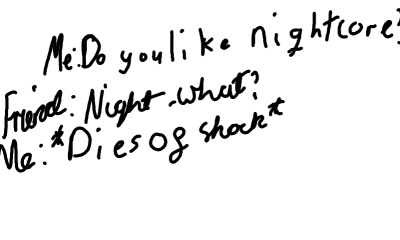 Me:Do you like nightcore?
Friend: Night-what?
Me: *Dies og shock*